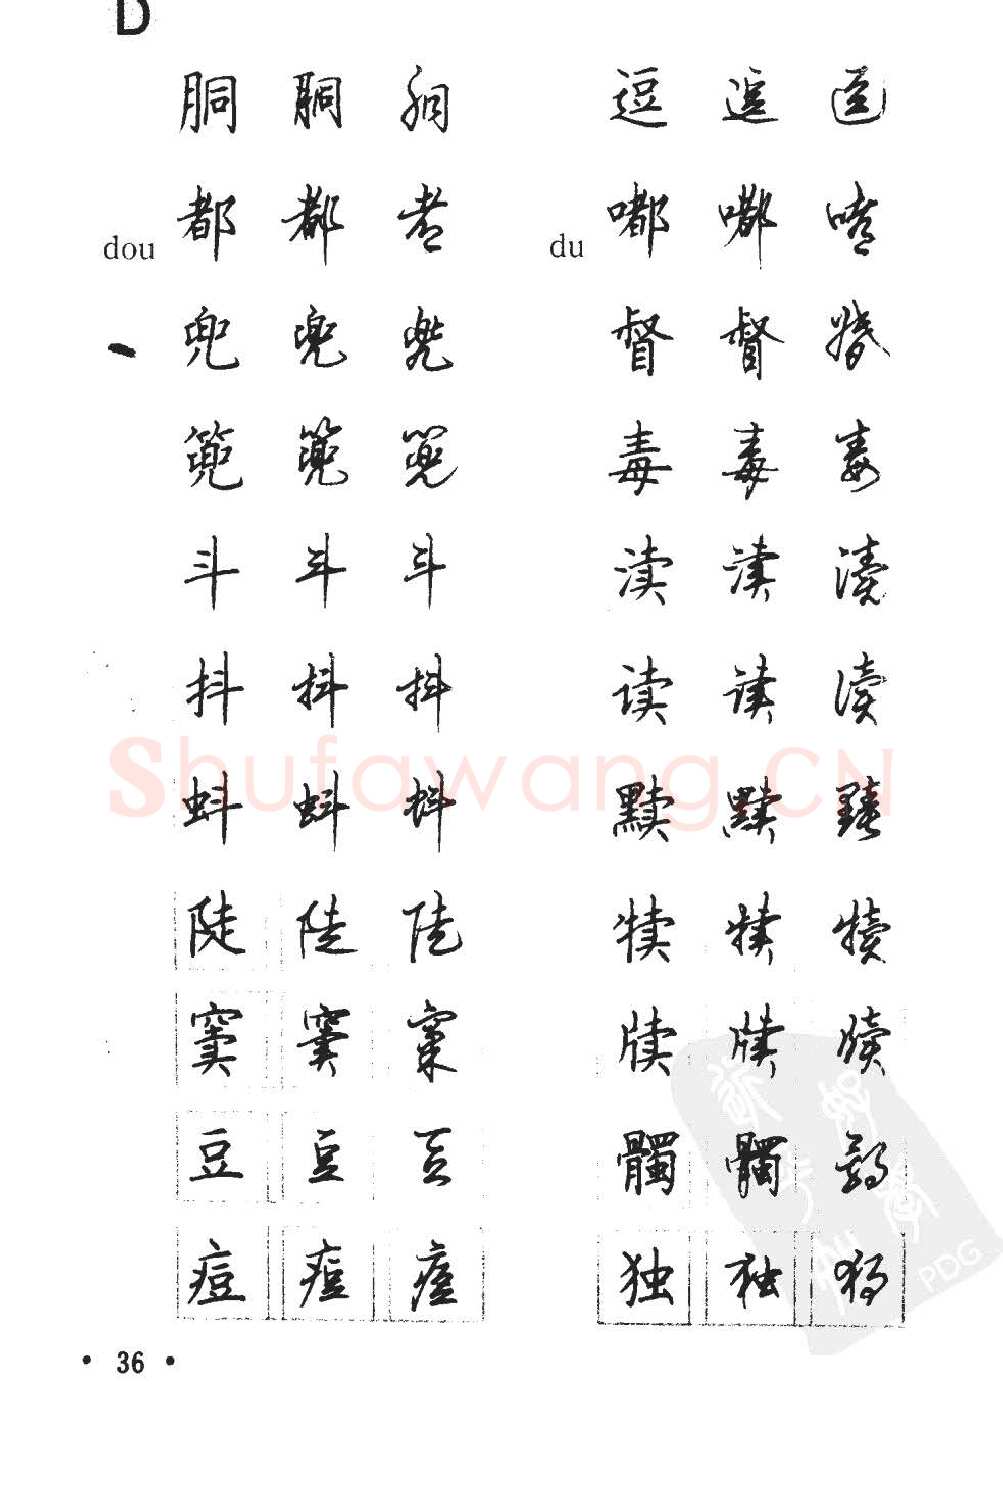 D
胴 胴 胴
dou 都 都 都
兜 兜 兜
篼 篼 篼
斗 斗 斗
抖 抖 抖
蚪 蚪 蚪
陡 陡 陡
窦 窦 窦
豆 豆 豆
痘 痘 痘
逗 逗 逗
du 嘟 嘟 嘟
督 督 督
毒 毒 毒
渎 渎 渎
读 读 读
黩 黩 黩
犊 犊 犊
牍 牍 牍
髑 髑 髑
独 独 独
Shufawang.CN
PDG
• 36 •